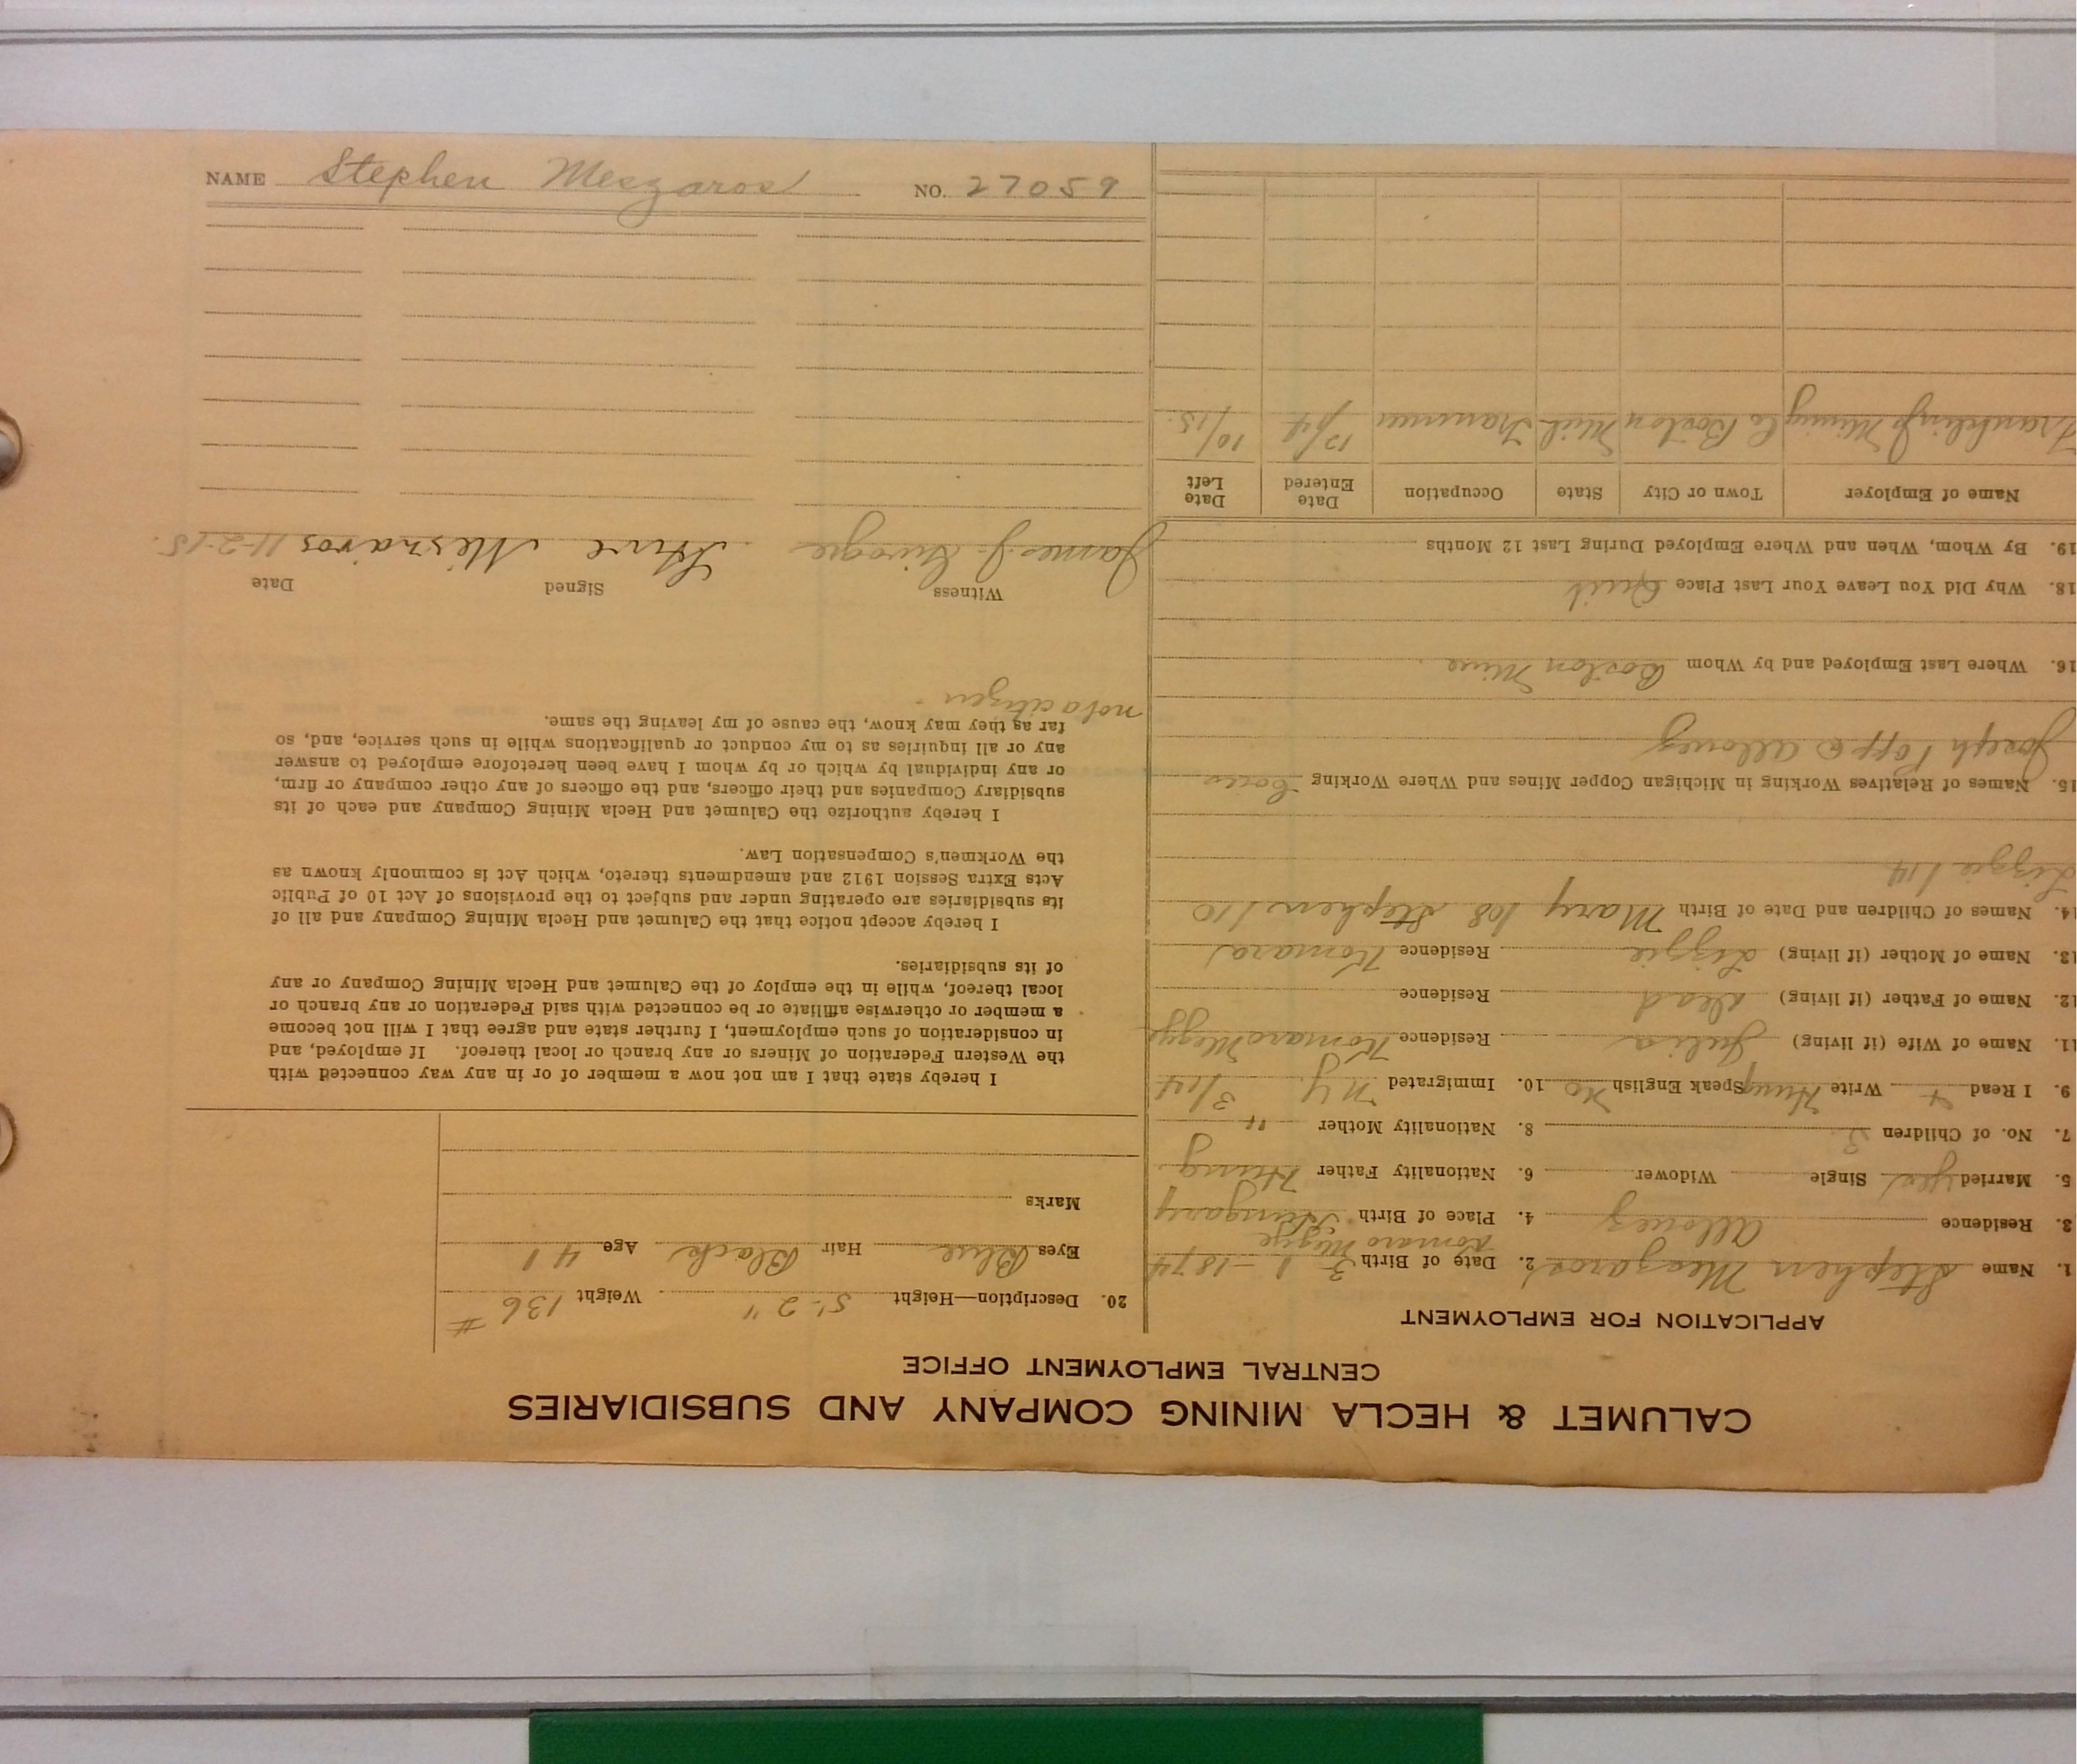 NAME Stephen Meszaros NO. 27059
CALUMET & HECLA MINING COMPANY AND SUBSIDIARIES
CENTRAL EMPLOYMENT OFFICE
APPLICATION FOR EMPLOYMENT
1. Name Stephen Meszaros 2. Date of Birth 3-1-1874
Komaro Megye
3. Residence Allouez 4. Place of Birth Hungary
5. Married yes Single Widower 6. Nationality Father Hung
7. No. of Children 3 8. Nationality Mother "
9. I Read + Write Hung Speak English no 10. Immigrated N.Y. 3/14
11. Name of Wife (if living) Julia Residence Komaro Megye
12. Name of Father (if living) Dead Residence
13. Name of Mother (if living) Lizzie Residence Komaro
14. Names of Children and Date of Birth Mary 108 Stephen 110
Lizzie 114
15. Names of Relatives Working in Michigan Copper Mines and Where Working
Joseph Papp @ Allouez
16. Where Last Employed and by Whom Boston Mine
18. Why Did You Leave Your Last Place Quit
19. By Whom, When and Where Employed During Last 12 Months
Name of Employer Town or City State Occupation Date Entered Date Left
Franklin Mining Co Boston Mich Trammer 12/14 10/15.
20. Description—Height 5'-2" Weight 136 #
Eyes Blue Hair Black Age 41
Marks
I hereby state that I am not now a member of or in any way connected with
the Western Federation of Miners or any branch or local thereof. If employed, and
in consideration of such employment, I further state and agree that I will not become
a member or otherwise affiliate or be connected with said Federation or any branch or
local thereof, while in the employ of the Calumet and Hecla Mining Company or any
of its subsidiaries.
I hereby accept notice that the Calumet and Hecla Mining Company and all of
its subsidiaries are operating under and subject to the provisions of Act 10 of Public
Acts Extra Session 1912 and amendments thereto, which Act is commonly known as
the Workmen's Compensation Law.
I hereby authorize the Calumet and Hecla Mining Company and each of its
subsidiary Companies and their officers, and the officers of any other company or firm,
or any individual by which or by whom I have been heretofore employed to answer
any or all inquiries as to my conduct or qualifications while in such service, and, so
far as they may know, the cause of my leaving the same.
not a citizen.
Witness Signed Date
James J. Mészáros 11-2-15.